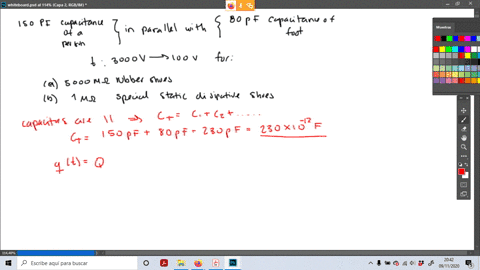 whiteboard.psd al 114% (Capa 2, RGB/8#) *
150 PF capacitance of a person } in parallel with { 80 pF capacitance of foot
t : 3000V → 100 V for:
(a) 5000 MΩ rubber shoes
(b) 1 MΩ special static disipative shoes
capacitors are 11 ⇒ C+ = C1 + C2 + .....
C+ = 150 pF + 80 pF = 230 pF = 230 × 10⁻¹² F
q (t) = Q
Escribe aquí para buscar
20:42
09/11/2020